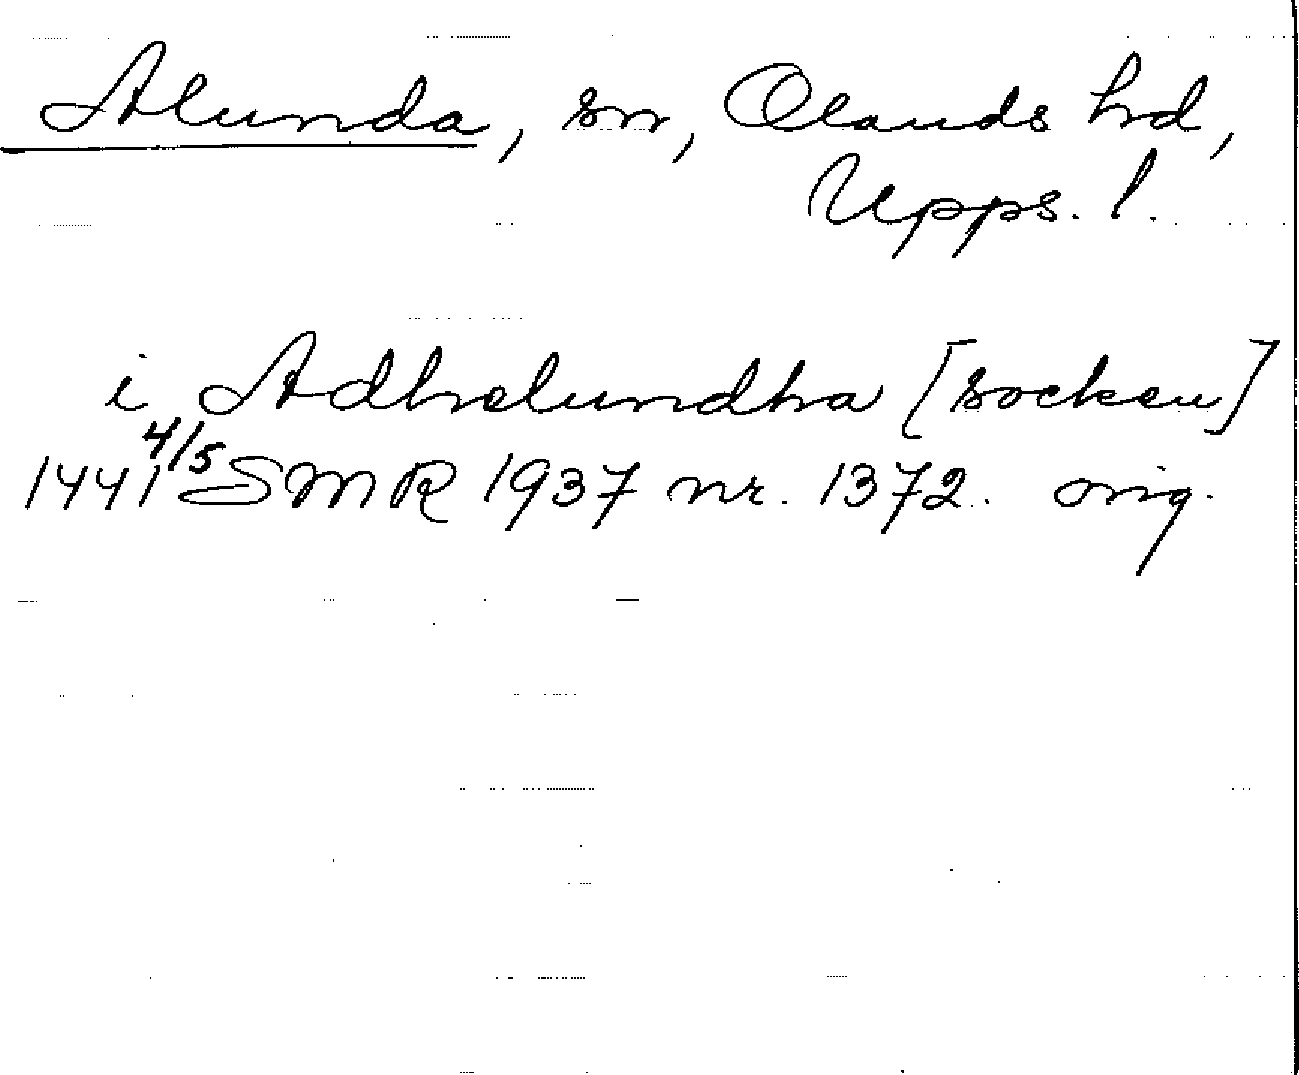 Alunda, sn, Olands hd,
Upps. l.
i Adhelundha [socken]
1441 4/5 SMR 1937 nr. 1372. orig.